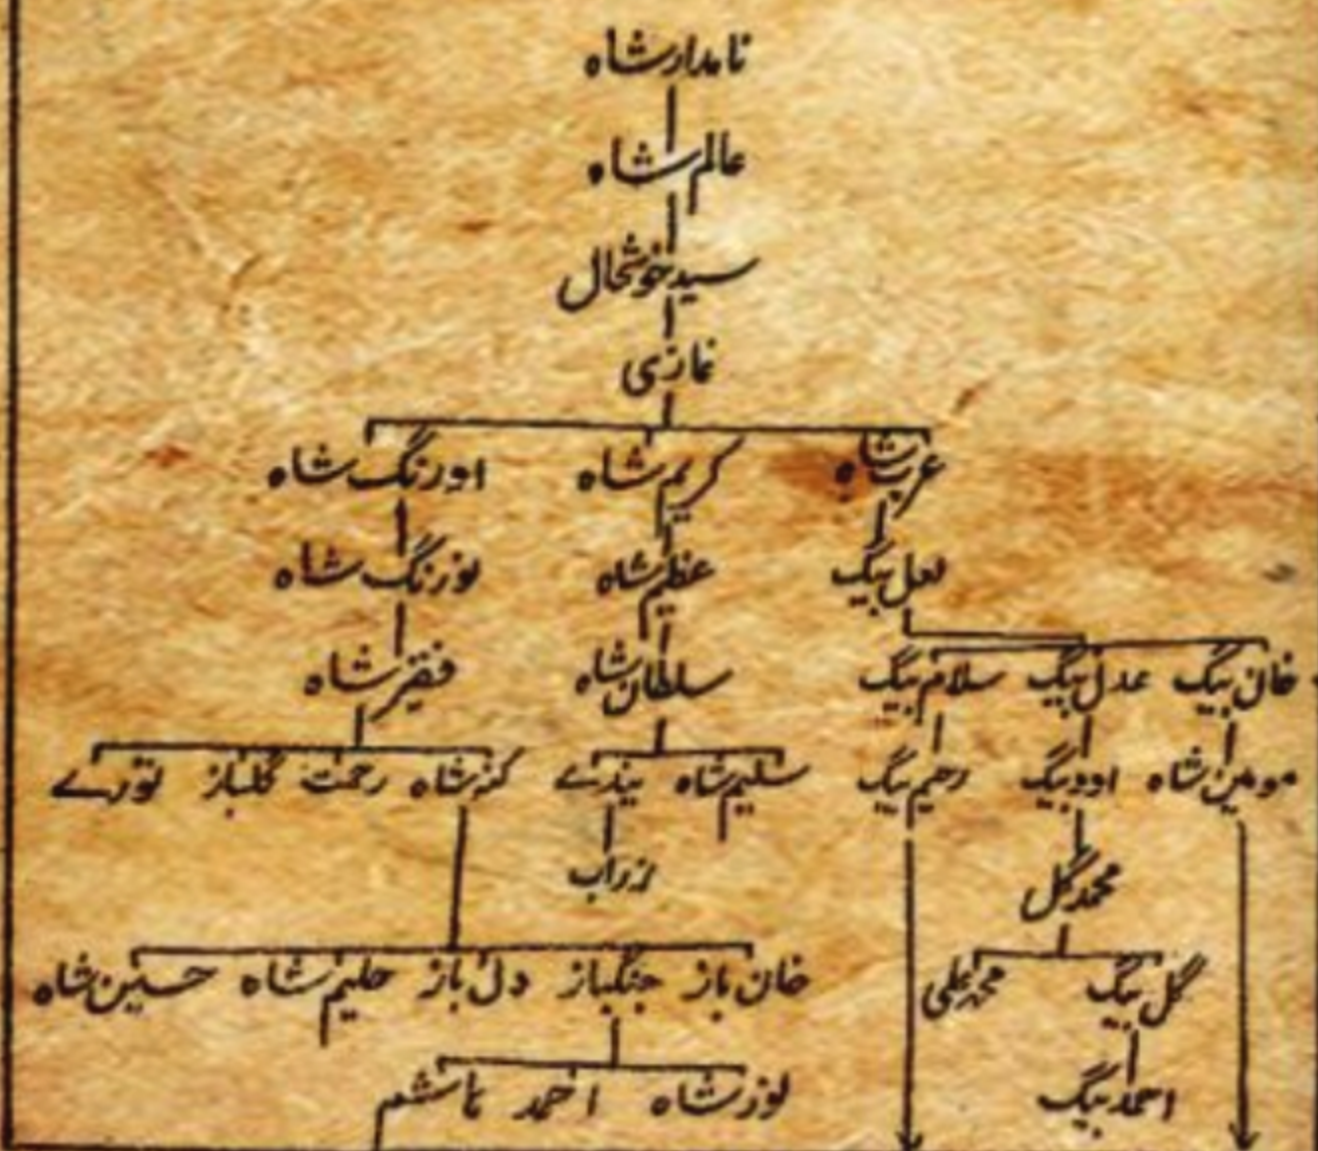 نامدار شاہ
عالم شاہ
سید خوشحال
غازی
عرب شاہ کریم شاہ اورنگ شاہ
لعل بیگ عظیم شاہ نورنگ شاہ
خان بیگ عدل بیگ سلام بیگ سلطان شاہ فقیر شاہ
مومین شاہ اوود بیگ رحیم بیگ سلیم شاہ رحمت گلباز نورے
محمد گل زراب
گل بیگ محمد علی خان باز جنگباز دل باز حلیم شاہ حسین شاہ
احمد بیگ نور شاہ احمد